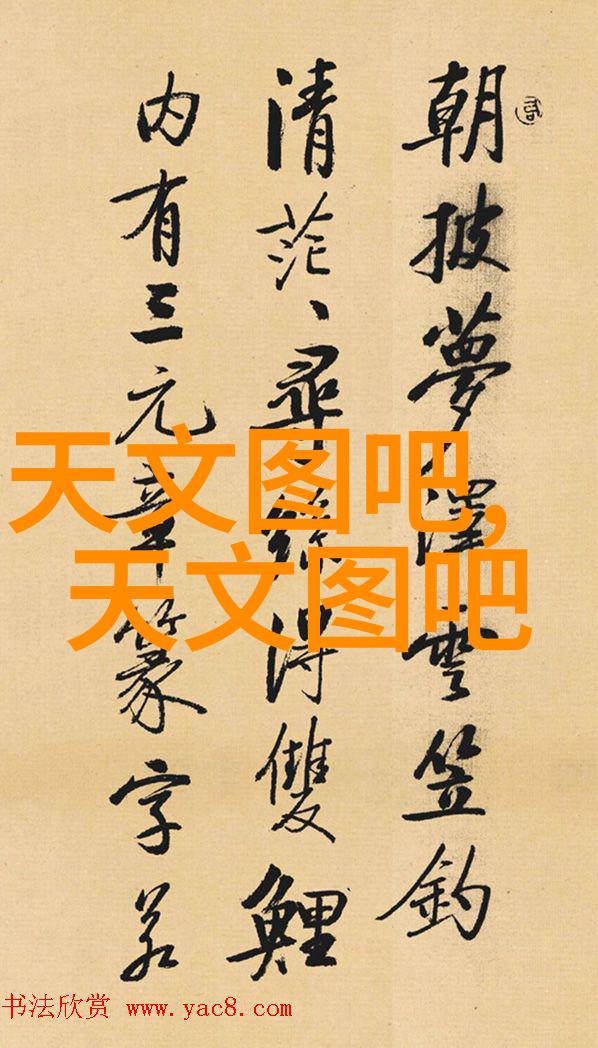 朝披夢澤雲笠釣
清茫、尋絲得雙鯉
内有三元章篆字若
天文图吧,
天文图吧
书法欣赏 www.yac8.com